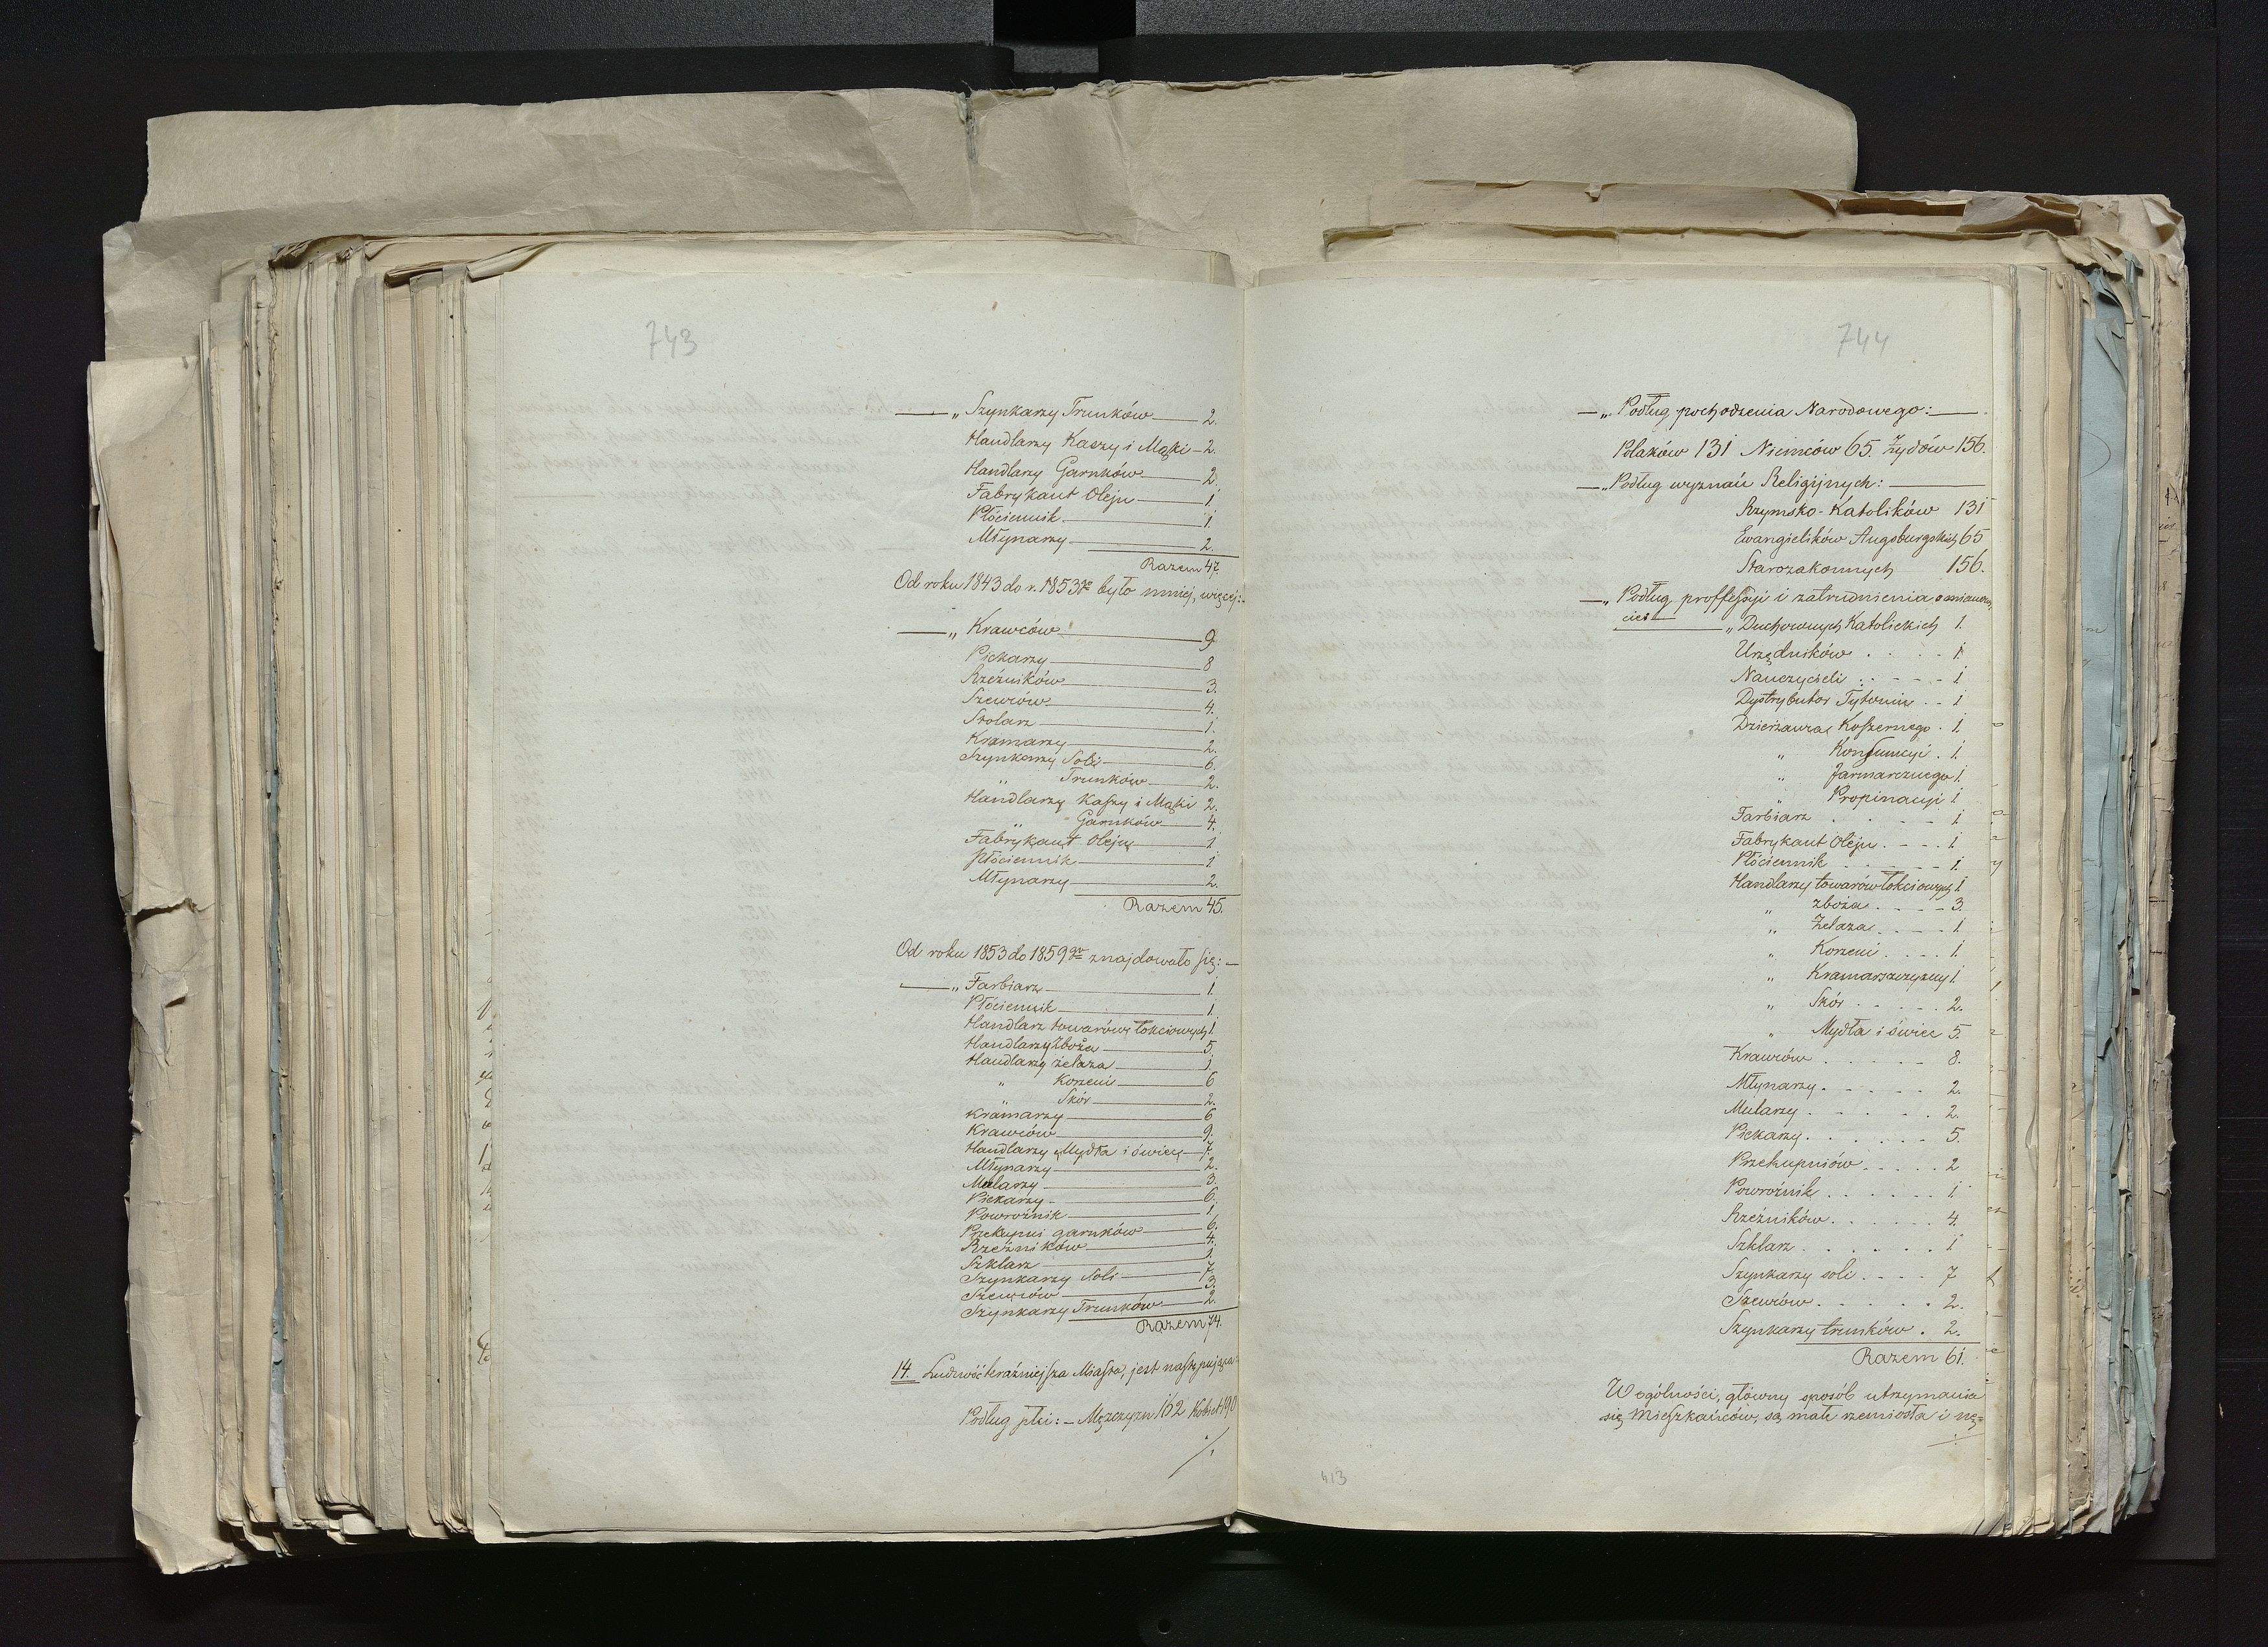 743
—„ Szynkarzy Trunków — 2.
Handlarzy Kaszy i Mąki — 2.
Handlarzy Garnków — 2.
Fabrykant Oleju — 1
Płóciennik — 1.
Młynarzy — 2.
Razem 47.
Od roku 1843 do r. 1853go było mniej, więcej:
—„ Krawców — 9
Piekarzy — 8
Rzeźników — 3.
Szewców — 4.
Stolarz — 1.
Kramarzy — 2.
Szynkarzy Soli — 6.
„ Trunków — 2.
Handlarzy Kaszy i Mąki 2.
„ Garnków — 4.
Fabrykant Oleju — 1
Płóciennik — 1
Młynarzy — 2.
Razem 45.
Od roku 1853 do 1859go znajdowało się: —
—„ Farbiarz — 1.
Płóciennik — 1.
Handlarz towarów łokciowych 1.
Handlarzy Zboża — 5.
Handlarzy żelaza — 1
„ Korzeni — 6
„ Skór — 2.
Kramarzy — 6
Krawców — 9.
Handlarzy Mydła i świec — 7.
Młynarzy — 2.
Mularzy — 3.
Piekarzy — 6.
Powroźnik — 1.
Przekupni garnków — 6.
Rzeźników — 4.
Szklarz — 1.
Szynkarzy Soli — 7.
Szewców — 3.
Szynkarzy Trunków — 2.
Razem 74.
14. Ludność teraźniejsza Miasta, jest następująca:
Podług płci: — Mężczyzn 162 Kobiet 190
./.
744
—„ Podług pochodzenia Narodowego: —
Polaków 131 Niemców 65. Żydów 156.
—„ Podług wyznań Religijnych: —
Rzymsko-Katolików 131
Ewangielików Augsburgskich 65
Starozakonnych 156.
—„ Podług professyi i zatrudnienia, a mianowi,
cie: —
„ Duchownych Katolickich 1.
Urzędników . . . . 1.
Nauczycieli . . . . 1
Dystrybutor Tytoniu . . 1
Dzierżawca Koszernego . 1.
„ Konsumcyi . 1
„ Jarmarcznego 1.
„ Propinacyi 1
Farbiarz . . . . . 1
Fabrykant Oleju . . . . 1
Płóciennik . . . . . 1.
Handlarzy towarów łokciowych 1
„ zboża . . . . 3.
„ Żelaza . . . . 1
„ Korzeni . . . . 1.
„ Kramarszczyzny 1.
„ Skór . . . . . 2.
„ Mydła i świec 5.
Krawców . . . . . 8.
Młynarzy . . . . . 2.
Mularzy . . . . . . 2.
Piekarzy . . . . . . 5.
Przekupniów . . . . . 2
Powroźnik . . . . . . 1
Rzeźników . . . . . . 4.
Szklarz . . . . . . 1
Szynkarzy soli . . . . 7
Szewców . . . . . . 2.
Szynkarzy trunków . 2.
Razem 61.
W ogólności, główny sposób utrzymania
się Mieszkańców, są małe rzemiosła i nę=
./.
413